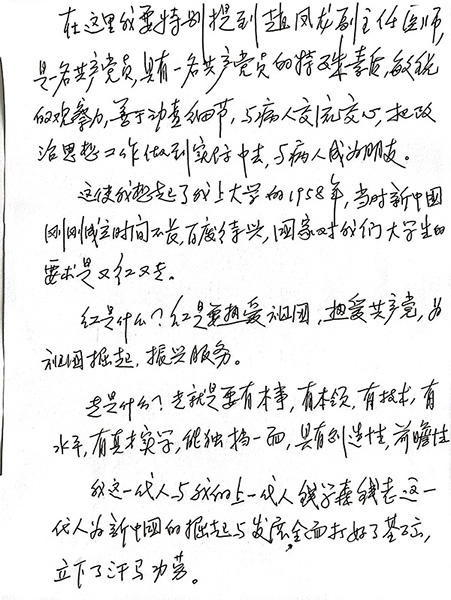 在这里我要特别提到赵凤龙副主任医师,
是一名共产党员,具有一名共产党员的特殊素质,敏锐
的观察力,善于动查细节,与病人交流交心,把政
治思想工作做到实际中去,与病人成为朋友。
这使我想起了我上大学的1958年,当时新中国
刚刚成立时间不长,百废待兴,国家对我们大学生的
要求是又红又专。
红是什么?红是要热爱祖国,热爱共产党,为
祖国掘起,振兴服务。
专是什么?专就是要有本事,有本领,有技术,有
水平,有真才实学,能独挡一面,具有创造性,前瞻性
我这一代人与我们上一代人钱学森钱老这一
代人为新中国的掘起与发展,全面打好了基础,
立下了汗马功劳。